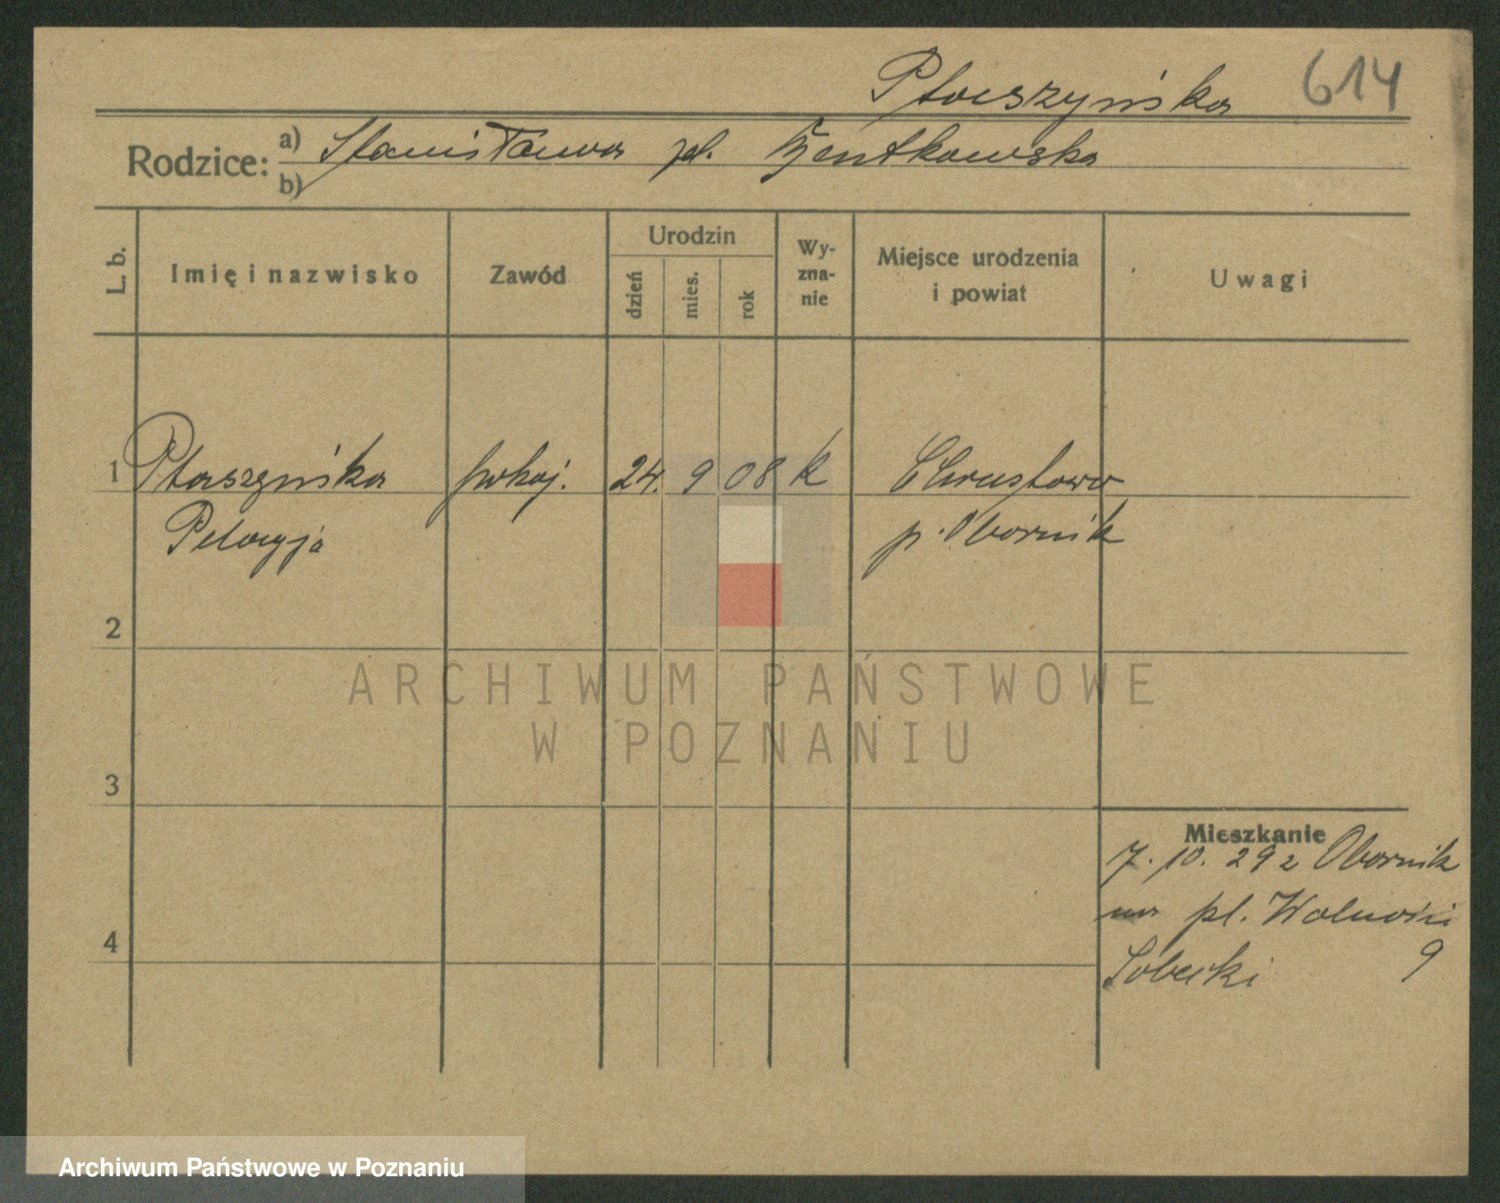 Ptaszyńska 614
Rodzice: a) Stanisława
b)
L. b.
Imię i nazwisko
Zawód
Urodzin
dzień
mies.
rok
Wy-
zna-
nie
Miejsce urodzenia
i powiat
Uwagi
1 Ptaszyńska pokoj. 24. 9 08 k Chrustowo
Pelagja p. Obornik
2
3
4
Mieszkanie
7. 10. 29 z Obornik
na pl. Wolności
Sobecki 9
ARCHIWUM PAŃSTWOWE
W POZNANIU
Archiwum Państwowe w Poznaniu